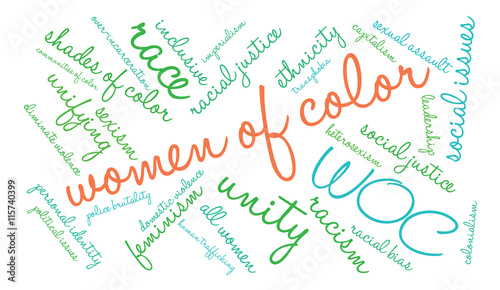 over-incarceration
inclusive
imperialism
race
racial justice
ethnicity
transphobia
capitalism
sexual assault
social issues
shades of color
communities of color
unifying
sexism
eliminate violence
women of color
leadership
heterosexism
social justice
WOC
personal identity
political issues
police brutality
domestic violence
feminism
all women
human trafficking
unity
racism
racial bias
colonialism
Adobe Stock | #115740399